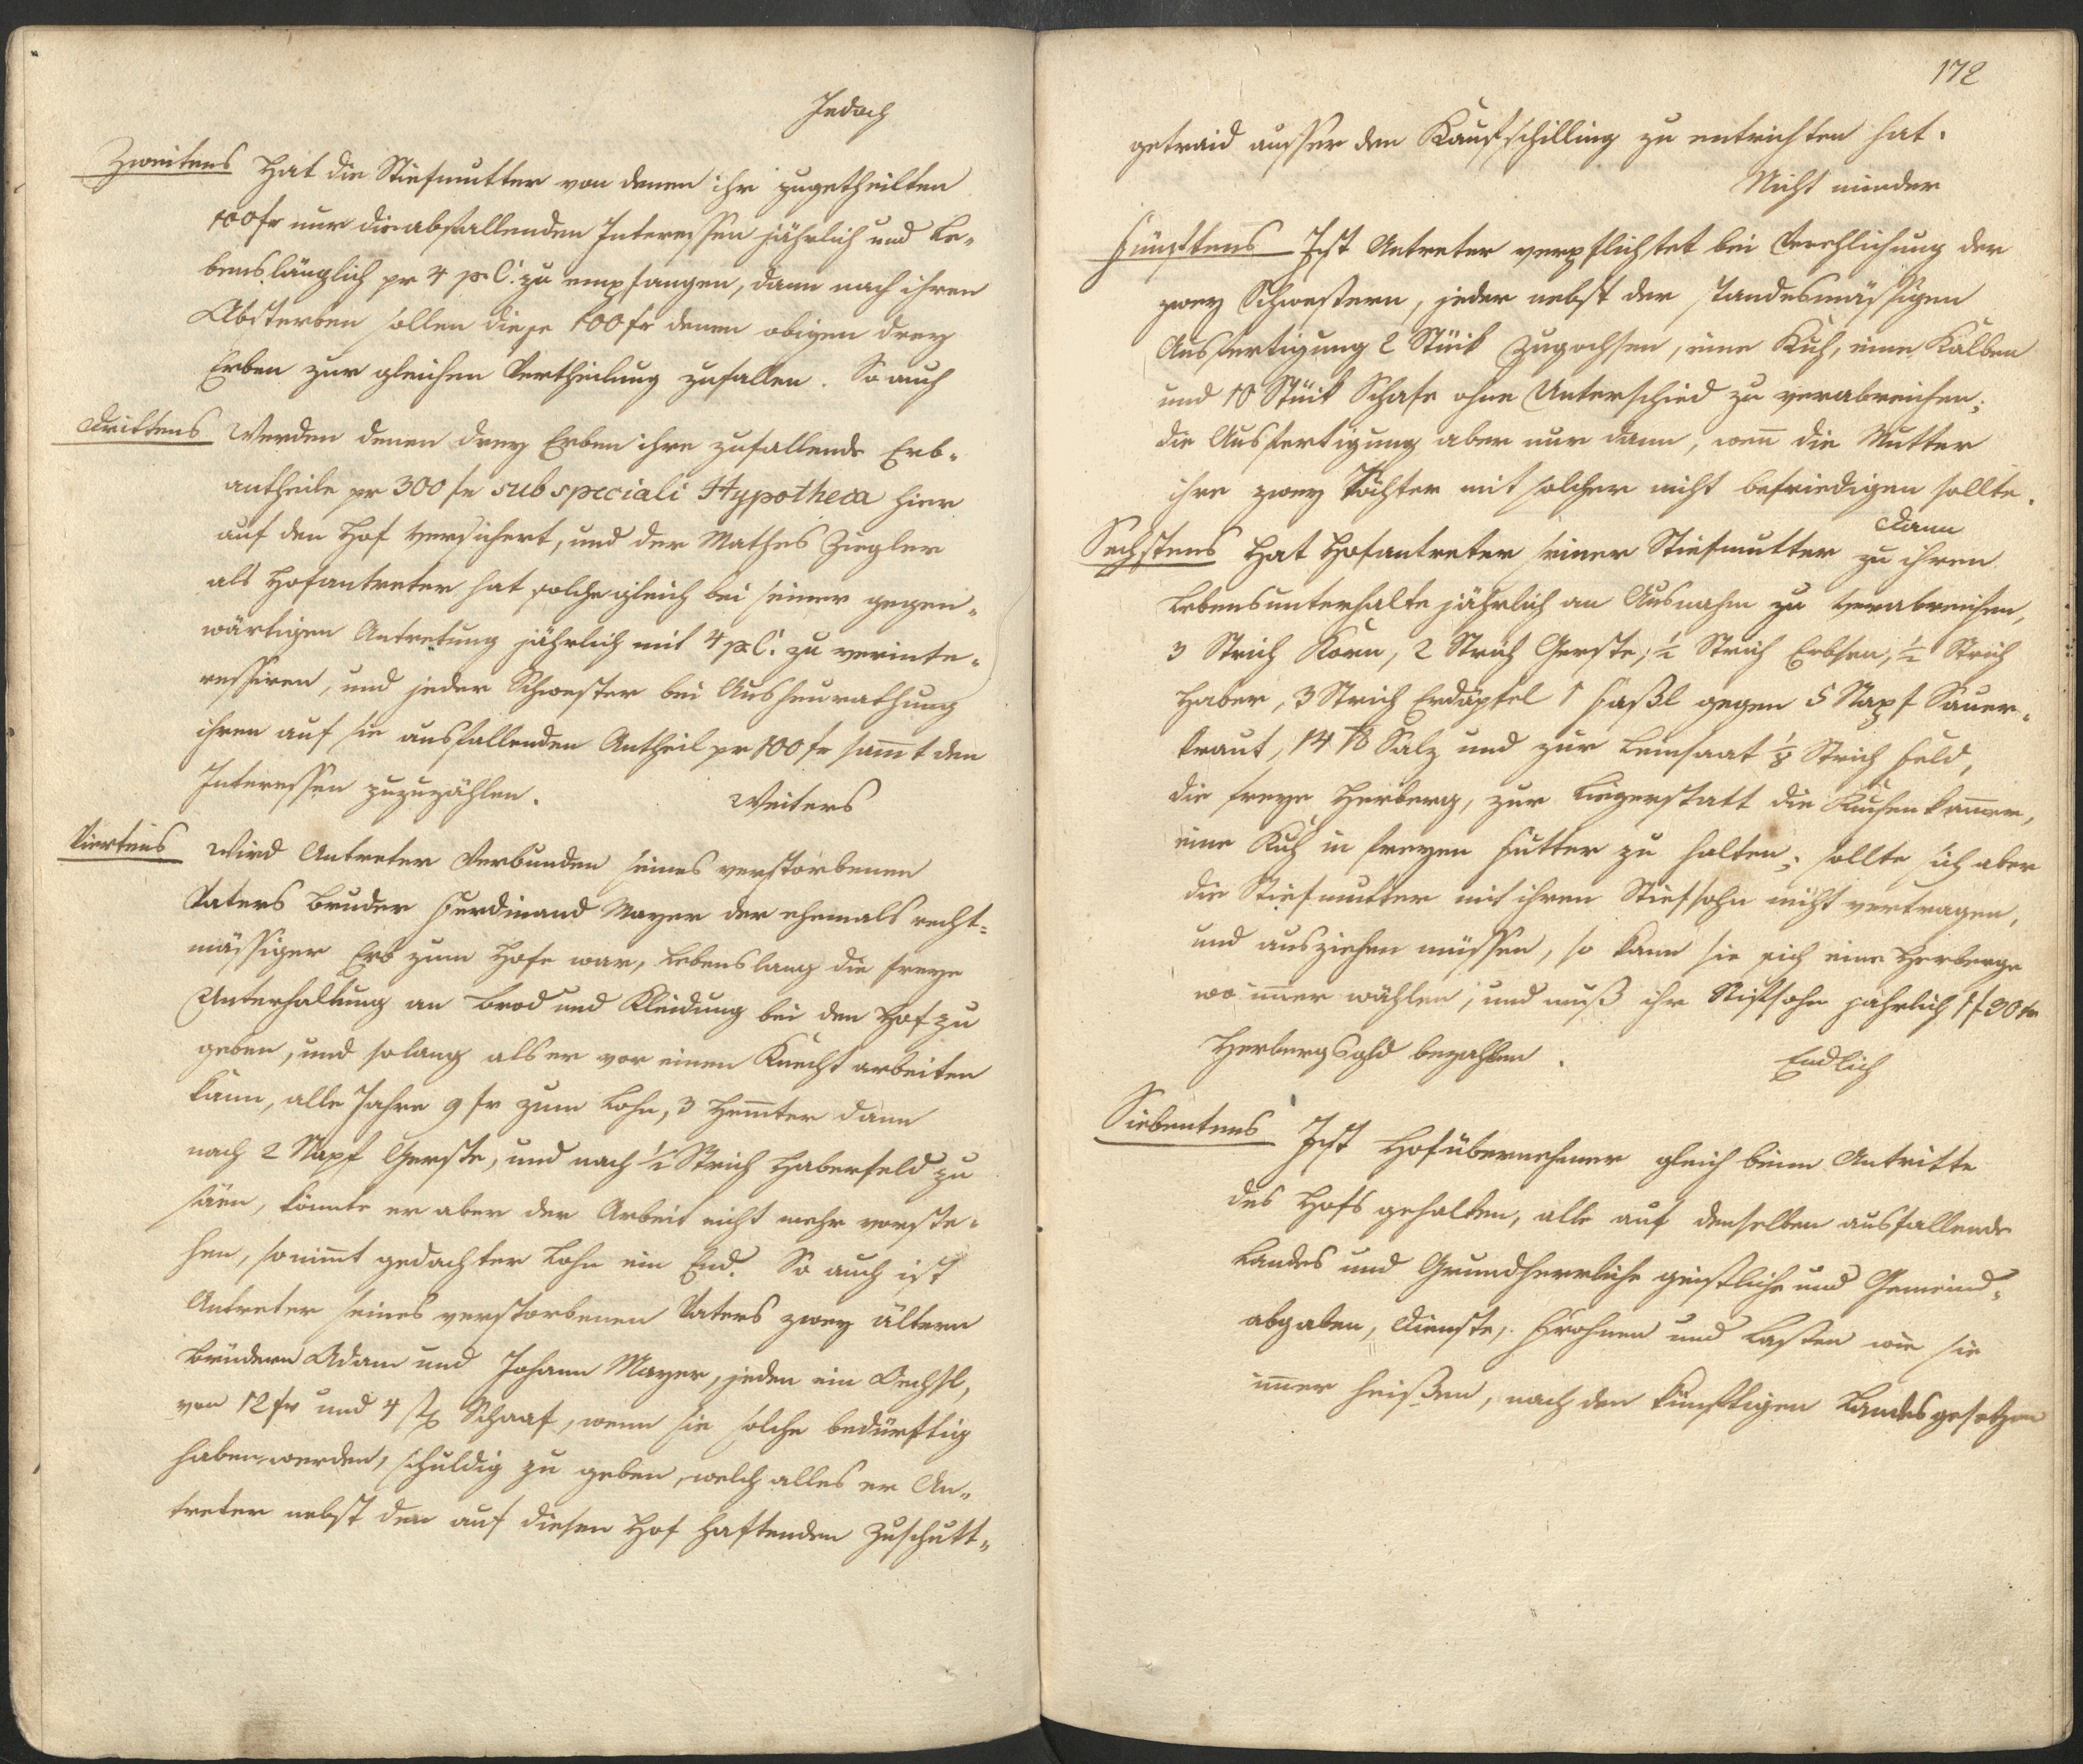 Jedoch
Zweitens Hat die Stiefmutter von denen ihr zugetheilten
100 fr nur die abfallenden Interessen jährlich und Le„
benslänglich pr 4 p. C. zu empfangen, dann nach ihren
Absterben sollen diese 100 fr denen obigen drey
Erben zur gleichen Vertheilung zufallen. So auch
Drittens Werden denen drey Erben ihre zufallende Erb„
antheile pr 300 fr sub speciali Hypotheca hier
auf den Hof versichert, und der Mathes Ziegler
als Hofantreter hat solche gleich bei seiner gegen„
wärtigen Antretung jährlich mit 4 p. C. zu verinte„
ressiren, und jeder Schwester bei Ausheurathung
ihren auf sie ausfallenden Antheil pr 100 fr samt den
Interessen zuzuzählen.
Weiters
Viertens Wird Antreter Verbunden seines verstorbenen
Vaters Bruder Ferdinand Mayer der ehemals recht„
mässiger Erb zum Hofe war, Lebenslang die freye
Unterhaltung an Brod und Kleidung bei den Hof zu
geben, und solang als er vor einen Knecht arbeiten
kann, alle Jahre 9 fr zum Lohn, 3 Hemter dann
nach 2 Napf Gerste, und nach ½ Strich Haberfeld zu
säen, könnte er aber der Arbeit nicht mehr vorste„
hen, so nimt gedachter Lohn ein End. So auch ist
Antreter seines verstorbenen Vaters zwey ältern
Brüdern Adam und Johann Mayer, jeden ein Oechsl,
von 12 fr und 4 st Schaaf, wenn sie solche bedürftig
haben werden, schuldig zu geben, welch alles er An„
treter nebst den auf diesen Hof haftenden Zuschütt„
172
getraid ausser den Kaufschilling zu entrichten hat.
Nicht minder
Fünftens Ist Antreter verpflichtet bei Verehlichung der
zwey Schwestern, jeder nebst der standesmässigen
Ausfertigung 2 Stück Zugochsen, eine Kuh, eine Kalben
und 10 Stück Schafe ohne Unterschied zu verabreichen;
die Ausfertigung aber nur dann, wen̄ die Mutter
ihre zwey Töchter mit solcher nicht befriedigen sollte.
Dann
Sechstens Hat Hofantreter seiner Stiefmutter zu ihren
Lebensunterhalte jährlich an Ausnahm zu verabreichen,
3 Strich Korn, 2 Strich Gerste, ½ Strich Erbsen, ½ Strich
Haber, 3 Strich Erdäpfel 1 Faßl gegen 5 Napf Sauer„
kraut, 14 ℔ Salz und zur Leinsaat ⅛ Strich Feld,
die freye Herberg, zur Liegerstatt die Kuchenkam̄er,
eine Kuh in freyen Futter zu halten; sollte sich aber
die Stiefmutter mit ihren Stiefsohn nicht vertragen,
und ausziehen müssen, so kann sie sich eine Herberge
wo im̄er wählen, und muß ihr Stifsohn jährlich 1 f 30 kr
Herbergsgld bezahlen.
Endlich
Siebentens Ist Hofübernehmer gleich beim Antritte
des Hofs gehalten, alle auf denselben ausfallende
Landes und Grundherrliche geistliche und Gemeind„
abgaben, Dienste, Frohnen und Lasten wie sie
im̄er heißen, nach den künftigen Landesgesetzen